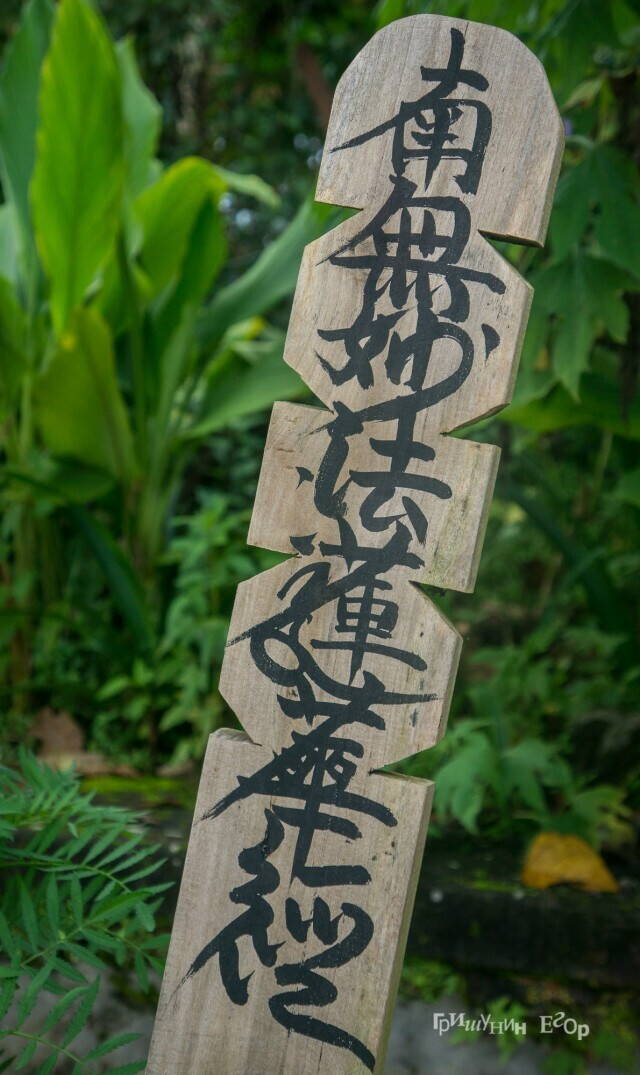 南無妙法蓮華経
Гришунин Егор